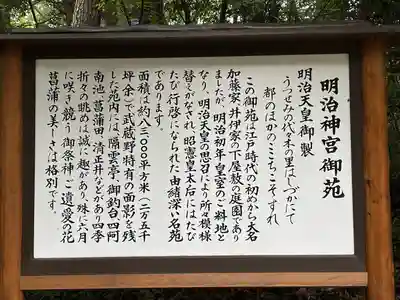 明治神宮御苑
明治天皇御製
うつせみの代々木の里はしづかにて
都のほかのここちこそすれ
この御苑は江戸時代の初めから大名
加藤家、井伊家の下屋敷の庭園であり
ましたが、明治初年皇室のご料地と
なり、明治天皇の思召により所々模様
替えがなされ、昭憲皇太后にはたび
たび行啓になられた由緒深い名苑
であります。
面積は約八三、〇〇〇平方米(二万五千
坪余)で、武蔵野特有の面影を残
した苑内には、隔雲亭・御釣台・四阿
南池・菖蒲田・清正井などがあり四季
折々の眺めは誠に趣があり、殊に六月
に咲き競う御祭神ご遺愛の花
菖蒲の美しさは格別です。